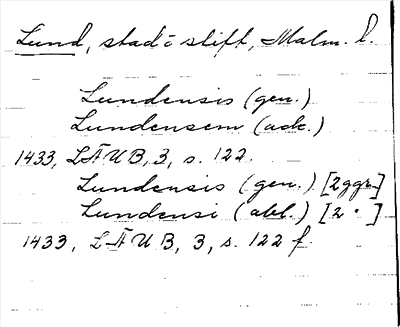 Lund, stad o stift, Malm. l.
Lundensis (gen.)
Lundensem (ack.)
1433, LÄUB, 3, s. 122.
Lundensis (gen.) [2 ggr]
Lundensi (abl.) [2 " ]
1433, LÄUB, 3, s. 122 f.